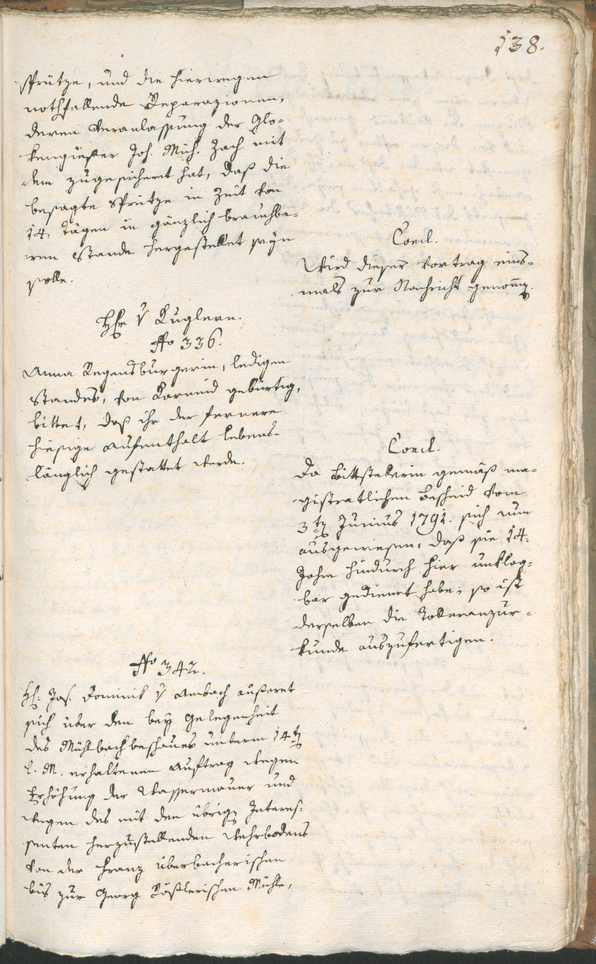 138.
Sprütze, und die hierwegen
nothfallende Reparazionen,
deren Veranlassung der Glo-
kengießer Joh. Mich. Zach mit
dem zugesichert hat, daß die
besagte Sprütze in Zeit von
14. Tägen in gänzlich brauchba-
ren Stande hergestellet seyn
solle.
Concl.
Wird dieser Vortrag eins-
mals zur Nachricht genom̅en.
H: v Kuglern.
No 336.
Anna Regensburgerin, ledigen
Standes, von Karneid gebürtig,
bittet, daß ihr der fernere
hiesige Aufenthalt lebens-
länglich gestattet werde.
Concl.
Da Bittstellerin gemäß ma-
gistratlichen Bescheid vom
3ten Junius 1791. sich nun
ausgewiesen, daß sie 14.
Jahre hindurch hier unklag-
bar gedienet habe; so ist
derselben die Toleranzur-
kunde auszufertigen.
No 342.
H: Jos. Dominik v Ambach äußeret
sich über den bey Gelegenheit
des Mühlbachbeschaues unterm 14ten
l. M. erhaltenen Auftrag wegen
Erhöhung der Wassermauer und
wegen des mit den übrigen Interes-
senten herzustellenden Wehrbodens
von der Franz überbacherischen
bis zur Georg Rößlerischen Mühle,